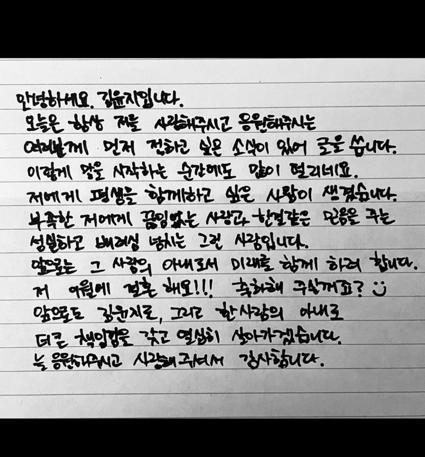 안녕하세요. 김윤지입니다.
오늘은 항상 저를 사랑해주시고 응원해주시는
여러분께 먼저 전하고 싶은 소식이 있어 글을 씁니다.
이렇게 말을 시작하는 순간에도 많이 떨리네요.
저에게 평생을 함께하고 싶은 사람이 생겼습니다.
부족한 저에게 끊임없는 사랑과 한결같은 믿음을 주는
성실하고 배려심 넘치는 그런 사람입니다.
앞으로는 그 사람의 아내로서 미래를 함께 하려 합니다.
저 9월에 결혼해요!!! 축하해 주실꺼죠? ☺
앞으로도 김윤지로, 그리고 한사람의 아내로
더큰 책임감을 갖고 열심히 살아가겠습니다.
늘 응원해주시고 사랑해주셔서 감사합니다.